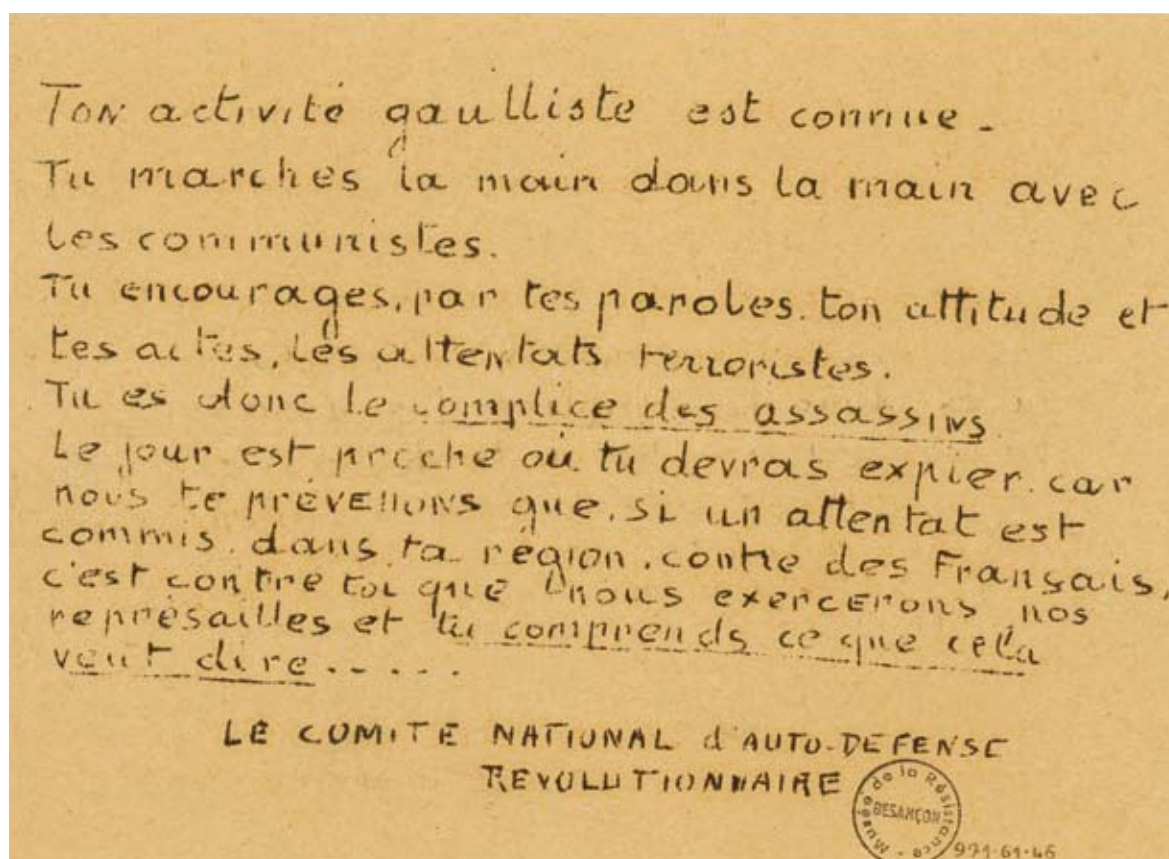 Ton activité gaulliste est connue.
Tu marches la main dans la main avec
les communistes.
Tu encourages, par tes paroles, ton attitude et
tes actes, les attentats terroristes.
Tu es donc le complice des assassins
Le jour est proche où tu devras expier, car
nous te prévenons que, si un attentat est
commis, dans ta région, contre des Français,
c'est contre toi que nous exercerons nos
représailles et tu comprends ce que cela
veut dire.....
LE COMITE NATIONAL d'AUTO-DEFENSE
REVOLUTIONNAIRE
Musée de la Résistance - BESANÇON
971-61-46